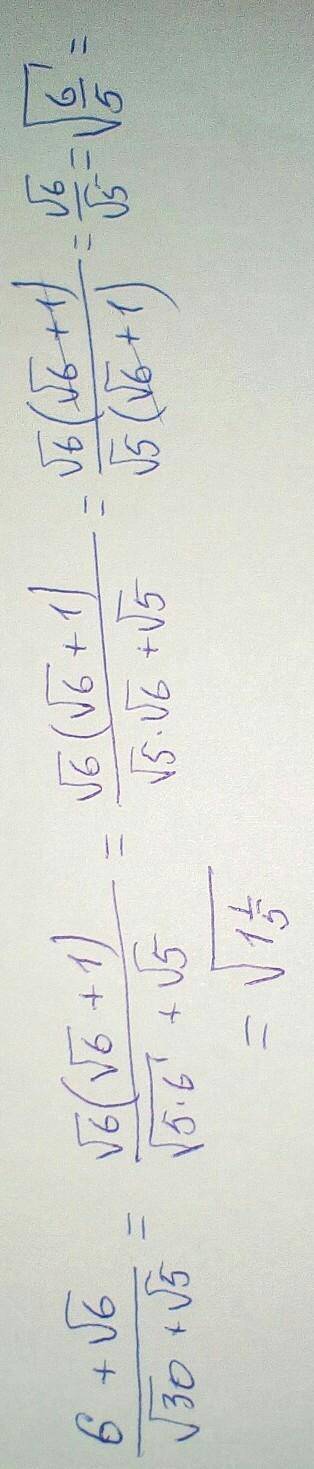 $\frac{6 + \sqrt{6}}{\sqrt{30} + \sqrt{5}} = \frac{\sqrt{6}(\sqrt{6} + 1)}{\sqrt{5 \cdot 6} + \sqrt{5}} = \frac{\sqrt{6}(\sqrt{6} + 1)}{\sqrt{5} \cdot \sqrt{6} + \sqrt{5}} = \frac{\sqrt{6}(\sqrt{6} + 1)}{\sqrt{5}(\sqrt{6} + 1)} = \frac{\sqrt{6}}{\sqrt{5}} = \sqrt{\frac{6}{5}} =$
$= \sqrt{1\frac{1}{5}}$